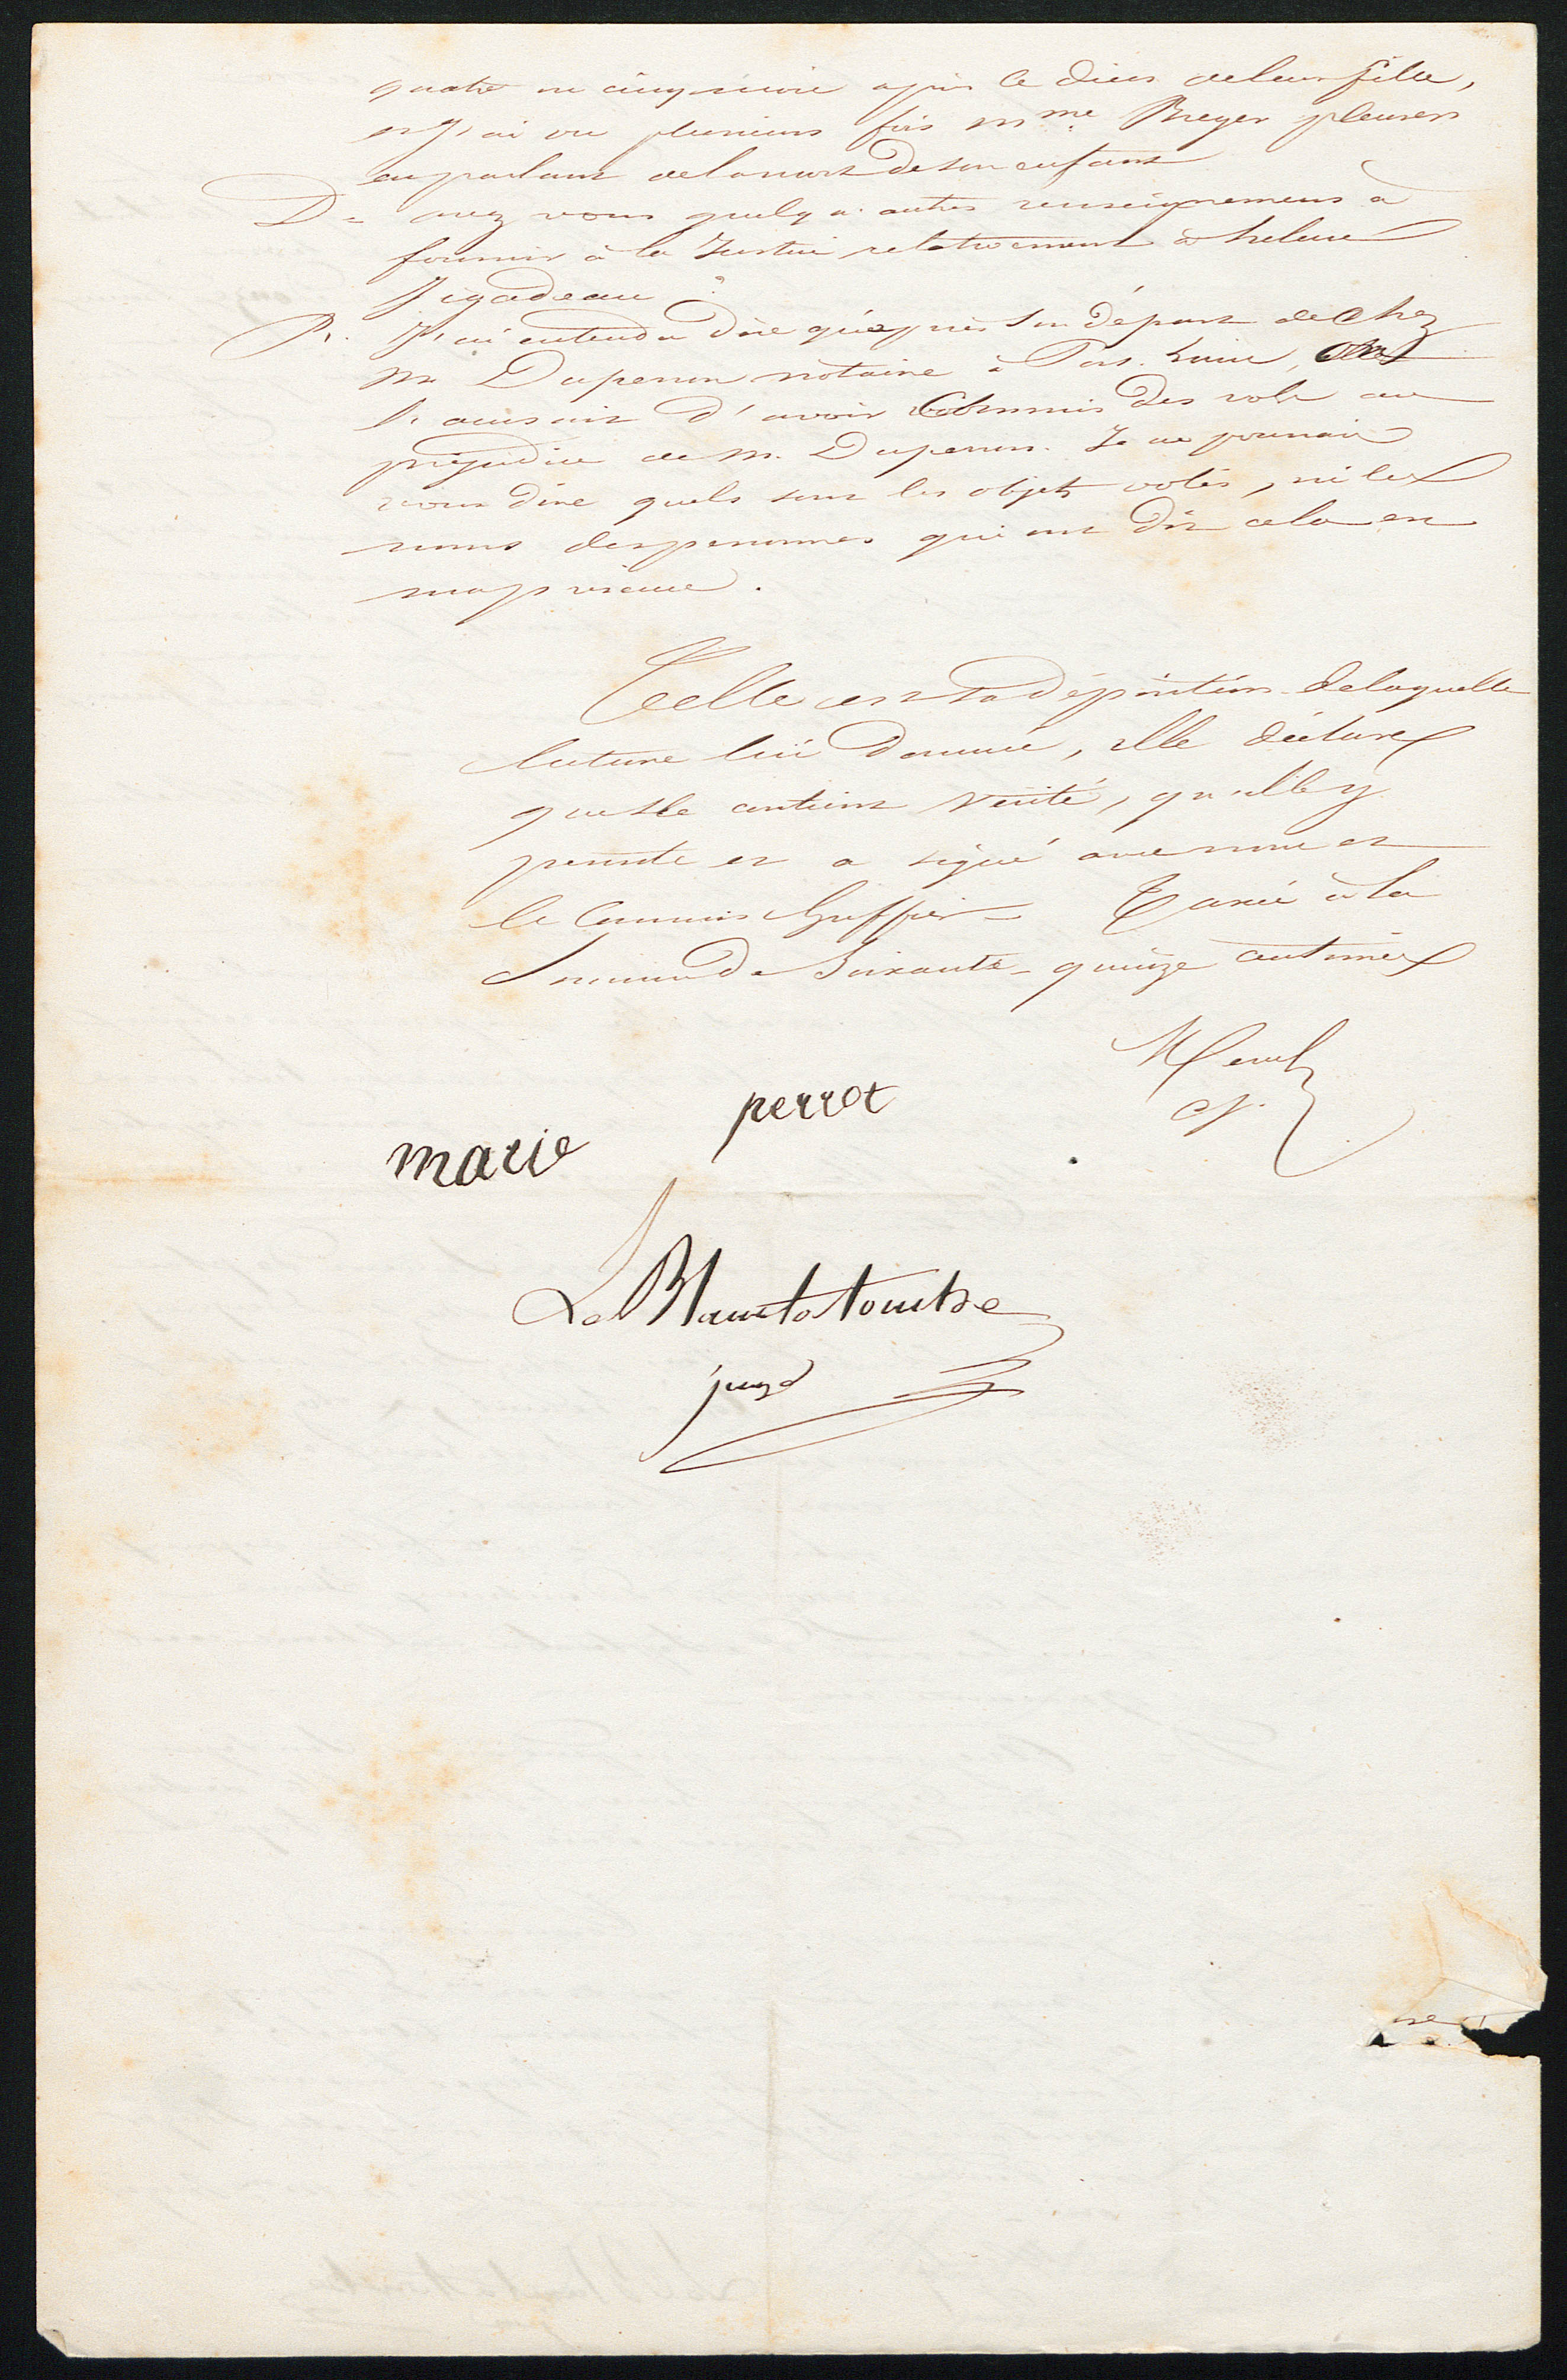 quatre ou cinq mois après le décès de leur fille,
et j'ai vu plusieurs fois Mme Breger pleurer
en parlant de la mort de son enfant
D = avez vous quelqu'autres renseignemens à
fournir à la Justice relativement à helene
Jégadeau ?
R. J'ai entendu dire qu'après son départ de chez
Mr Duperron notaire à Port-Louis, on
l'accusait d'avoir commis des vols au
préjudice de M. Duperron. Je ne pourrais
vous dire quels sont les objets volés, ni les
noms des personnes qui ont dit cela en
ma présence.
Telle est sa déposition de laquelle
lecture lui donnée, elle déclare
qu'elle contient vérité, qu'elle y
persiste et a signé avec nous et
le Commis Greffier = Taxée à la
Somme de Soixante-quinze centimes
perrot
marie
juge